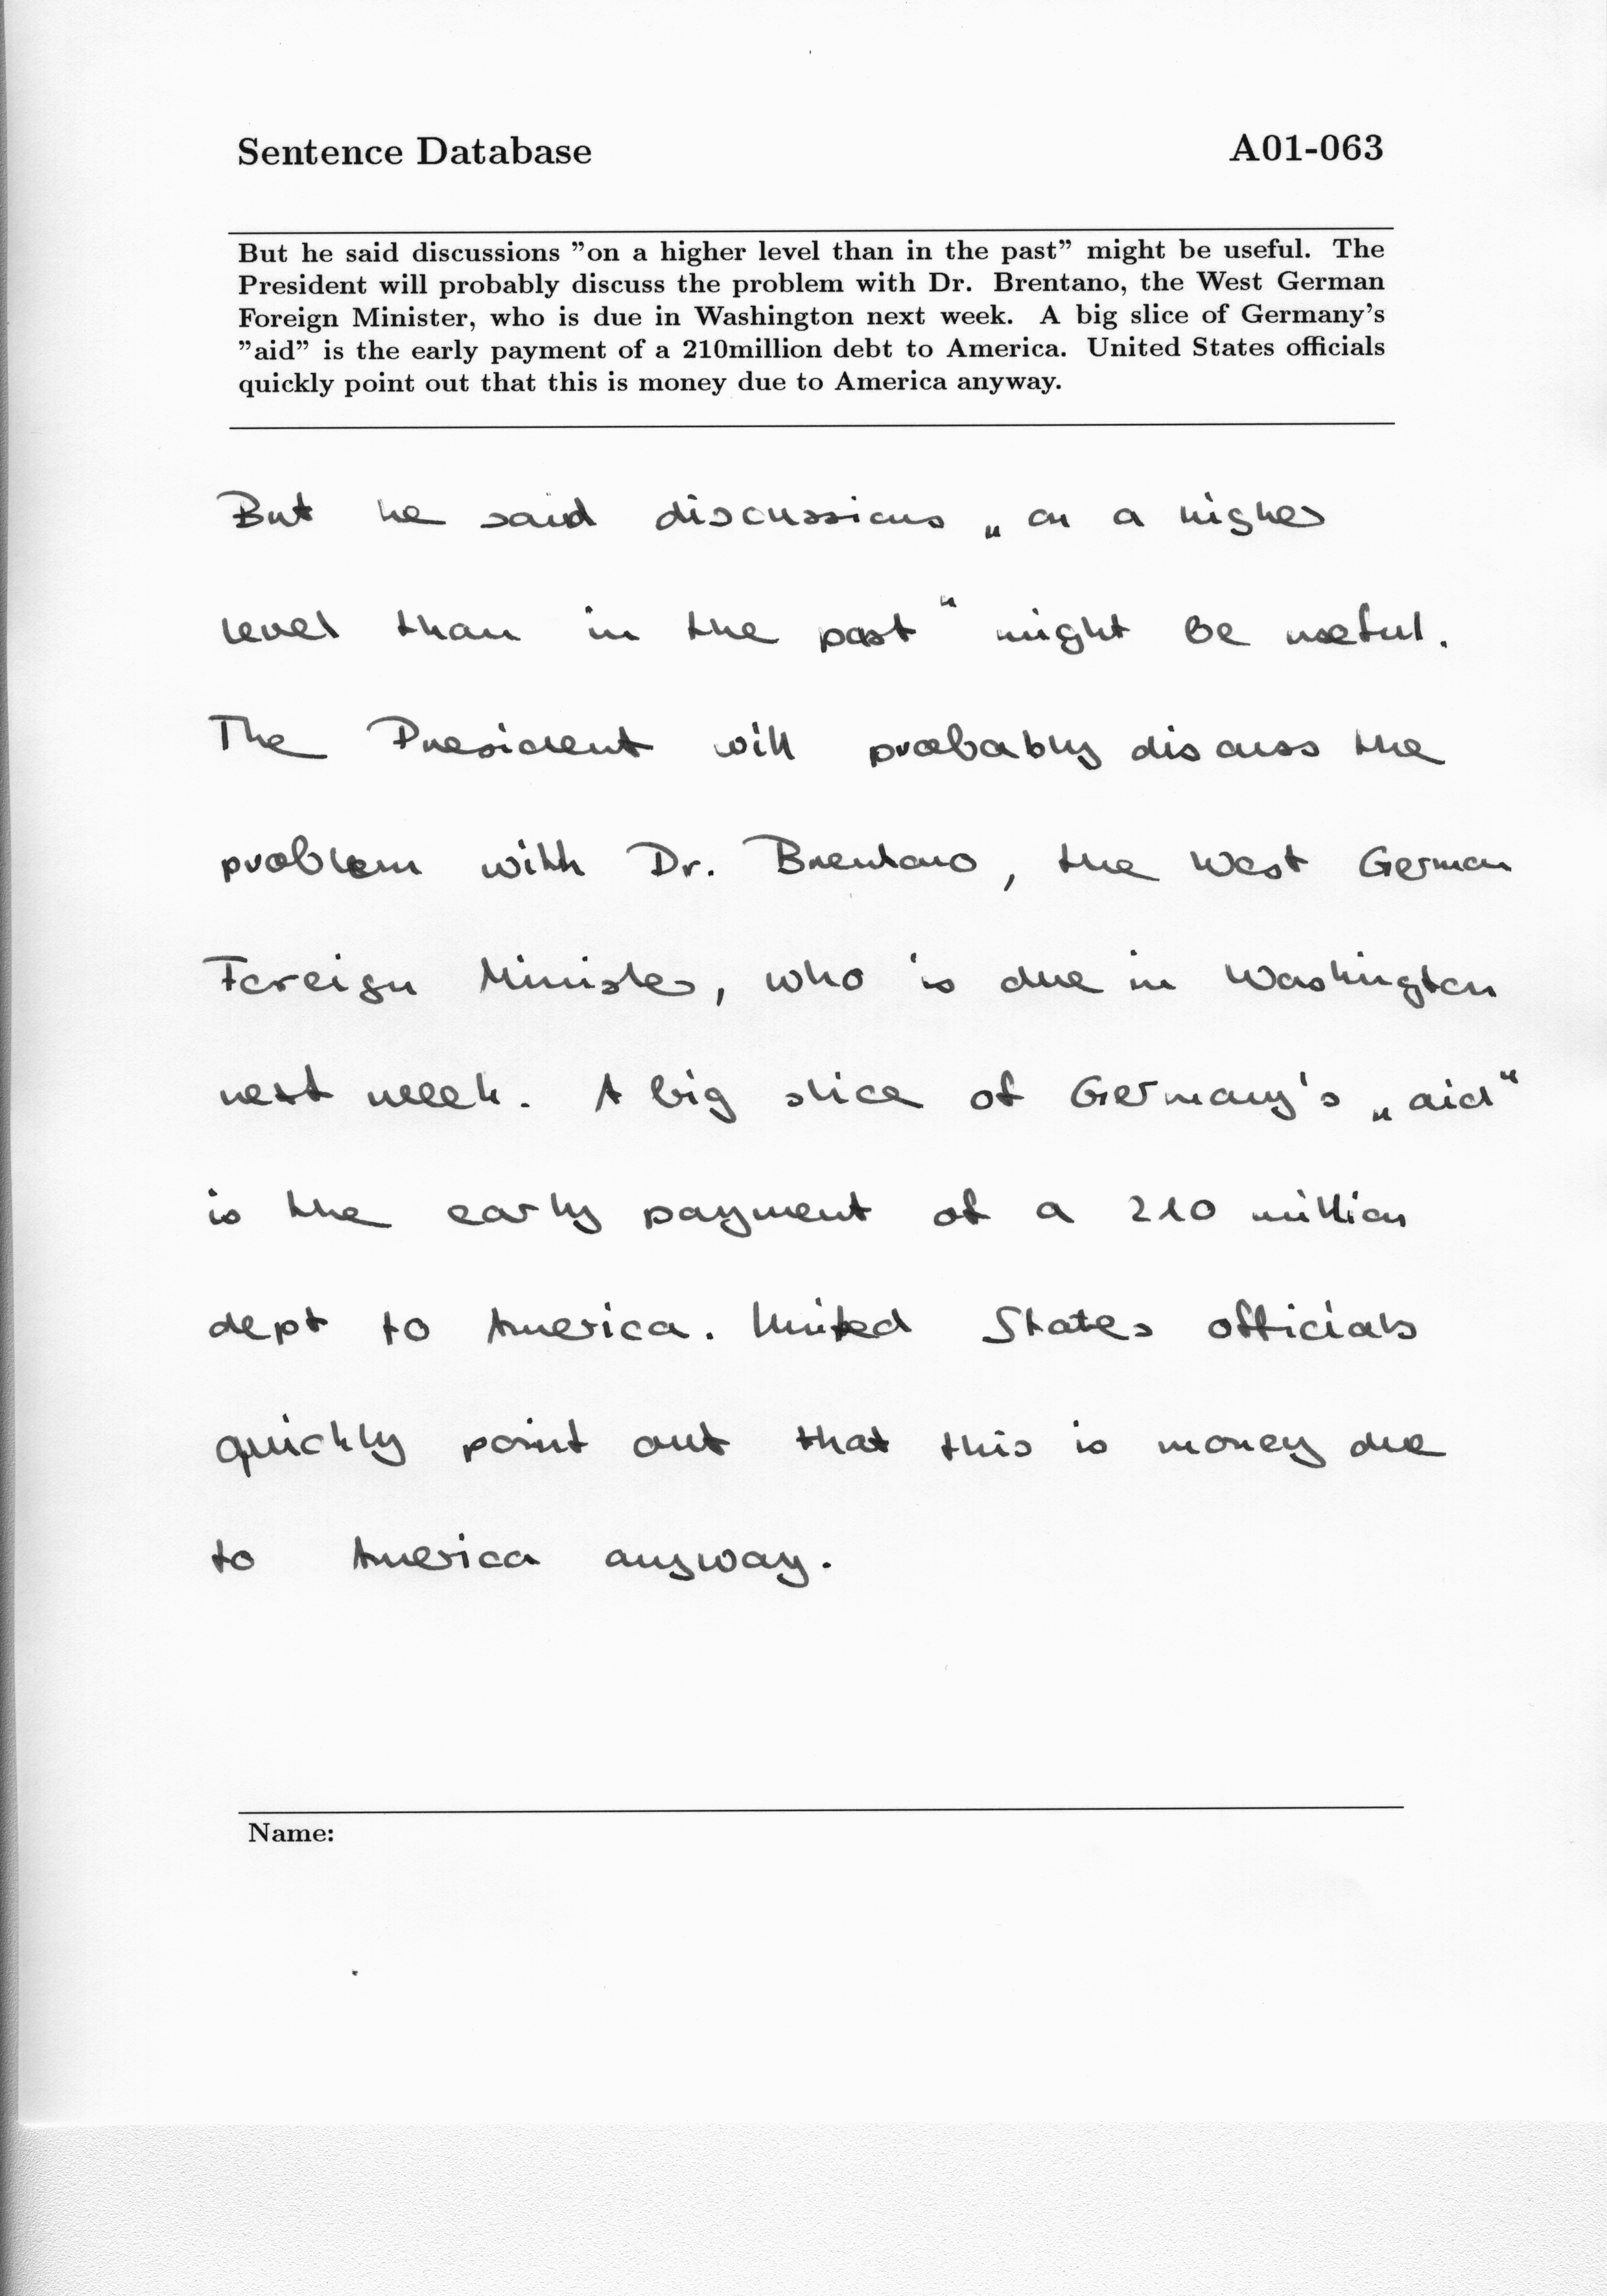 Sentence Database A01-063
But he said discussions ”on a higher level than in the past” might be useful. The
President will probably discuss the problem with Dr. Brentano, the West German
Foreign Minister, who is due in Washington next week. A big slice of Germany’s
”aid” is the early payment of a 210million debt to America. United States officials
quickly point out that this is money due to America anyway.
But he said discussions „on a higher
level than in the past“ might be useful.
The President will probably discuss the
problem with Dr. Brentano, the West German
Foreign Minister, who is due in Washington
next week. A big slice of Germany's „aid“
is the early payment of a 210 million
dept to America. United States officials
quickly point out that this is money due
to America anyway.
Name: